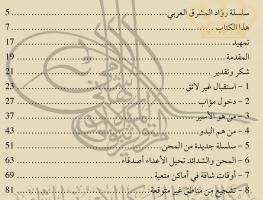 سلسلة روّاد المشرق العربي ..... 5
هذا الكتاب ..... 7
تمهيد ..... 17
المقدمة ..... 19
شكر وتقدير ..... 21
1 – استقبال غير لائق ..... 23
2 – دخول مؤاب ..... 27
3 – من هو الأسير ..... 37
4 – من هم البدو ..... 43
5 – سلسلة جديدة من المحن ..... 51
6 – المحن والشدائد تحيل الأعداء أصدقاء ..... 63
7 – أوقات شاقة في أماكن متعبة ..... 69
8 – تشجيع من مناطق غير متوقعة ..... 81